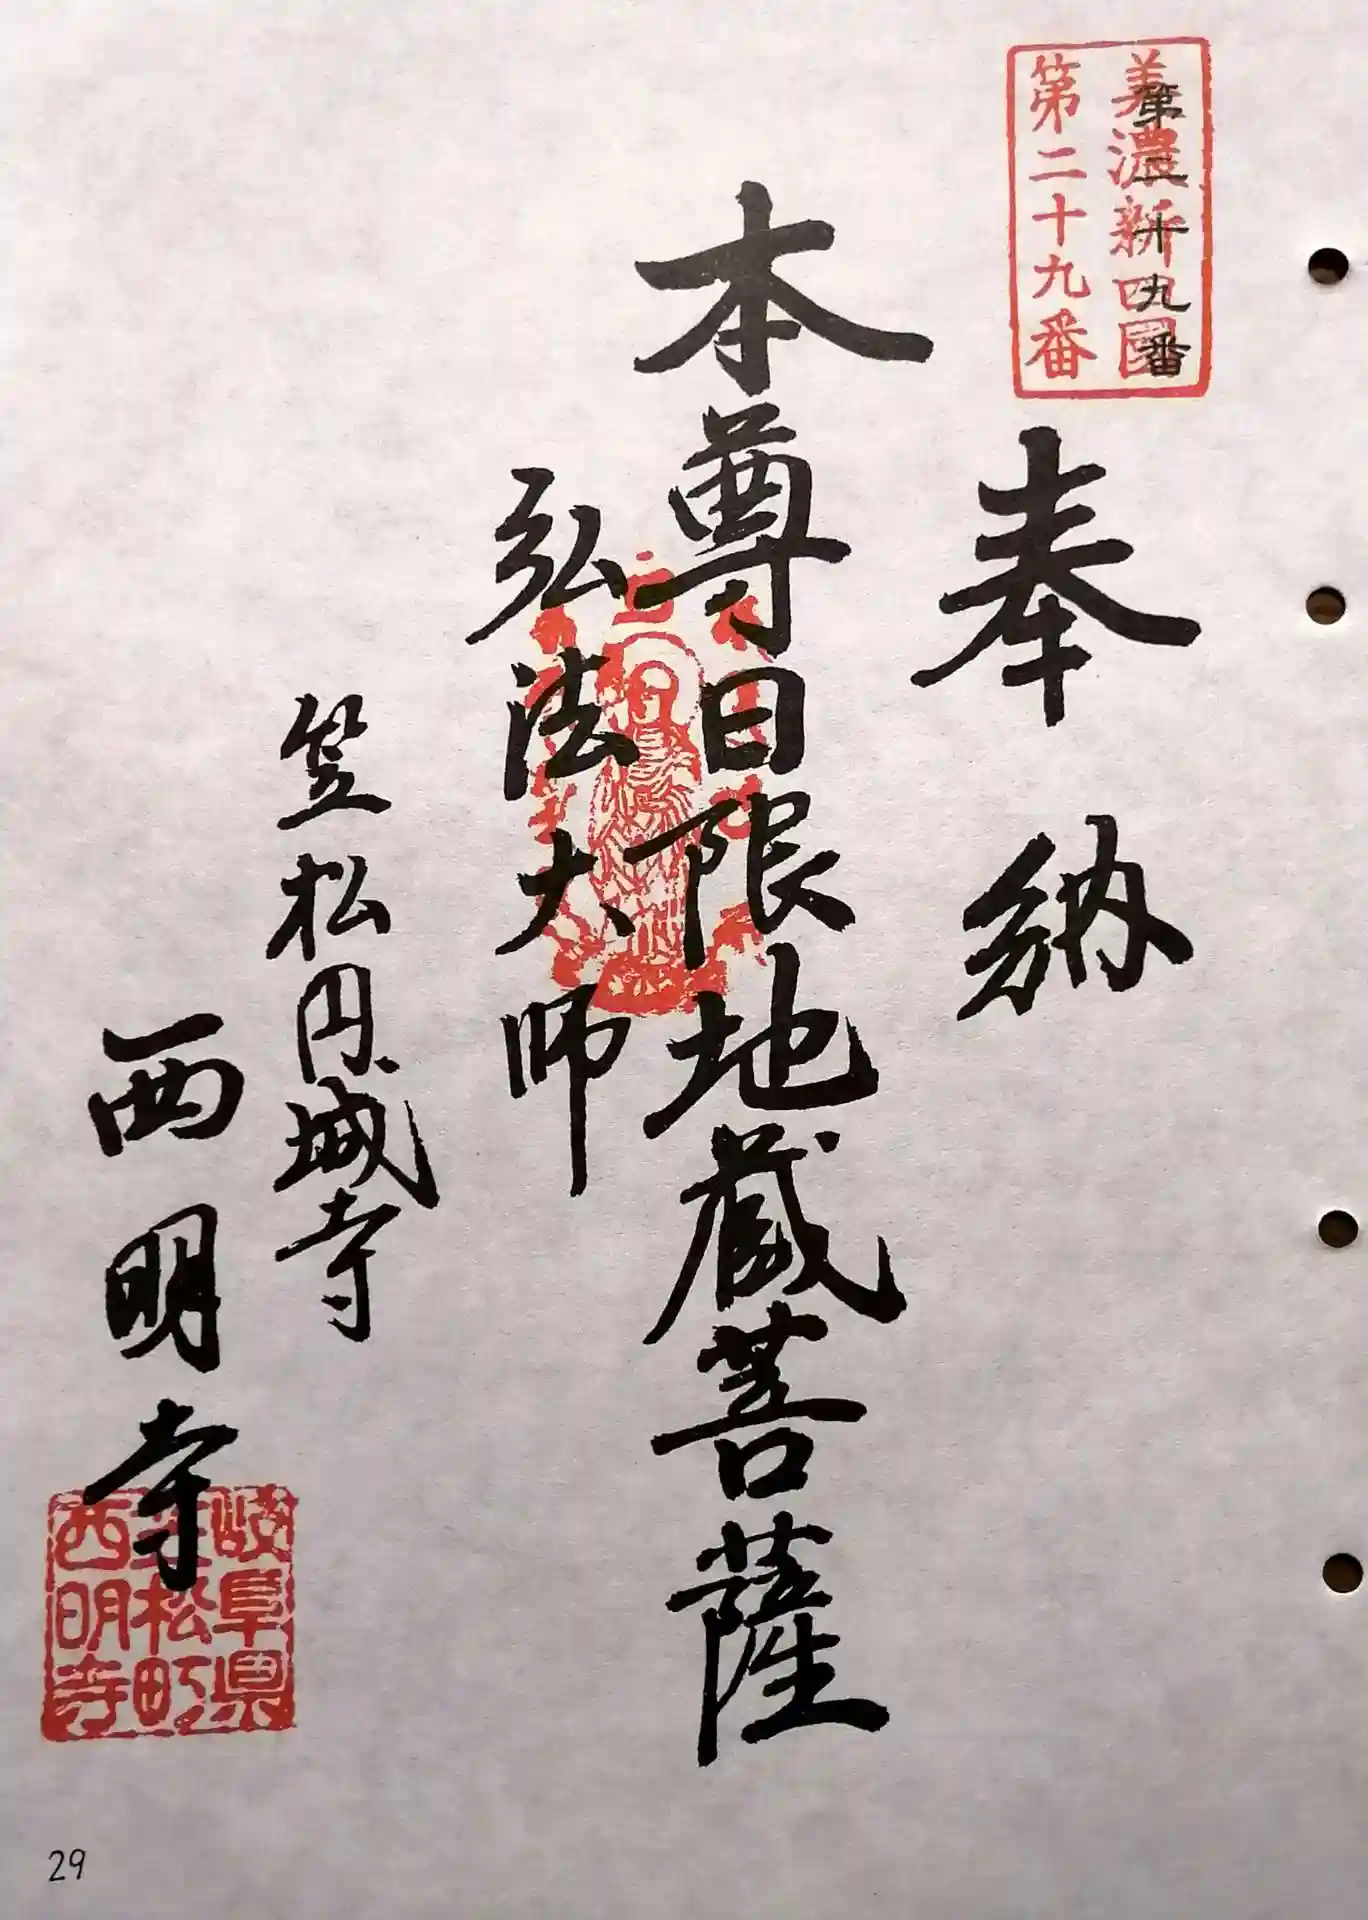 美濃新四國
第二十九番
第二十九番
奉納
本尊日限地蔵菩薩
弘法大師
笠松円城寺
西明寺
岐阜県
笠松町
西明寺
29